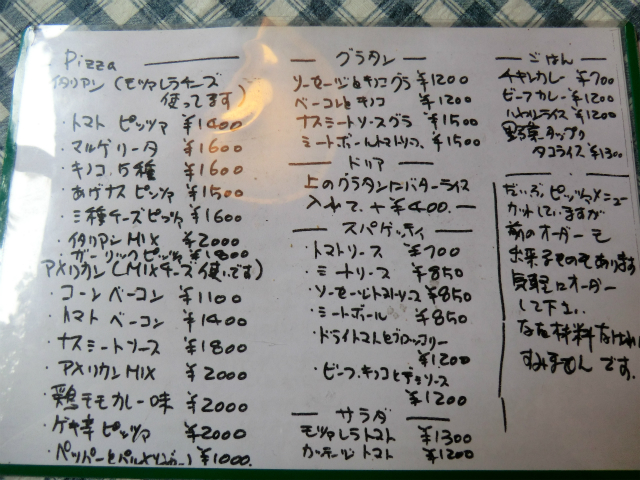 Pizza
イタリアン(モッツァレラチーズ
使ってます)
・トマト ピッツァ ¥1400
・マルゲリータ ¥1600
・キノコ5種 ¥1600
・あげナスピッツァ ¥1500
・三種チーズピッツァ ¥1600
・イタリアンMIX ¥2000
ガーリックピッツァ ¥1800
アメリカン(MIXチーズ使いです)
・コーンベーコン ¥1100
・トマトベーコン ¥1400
・ナスミートソース ¥1800
・アメリカンMIX ¥2000
・鶏モモカレー味 ¥2000
・ゲキ辛ピッツァ ¥2000
・ペッパーとパルメザン ¥1000
グラタン
ソーセージとキノコグラ ¥1200
ベーコンとキノコ ¥1200
ナスミートソースグラ ¥1500
ミートボールトマトソース ¥1500
ドリア
上のグラタンにバターライス
入れて、+¥400.ー
スパゲッティ
・トマトソース ¥700
・ミートソース ¥850
・ソーセージトマトソース ¥850
・ミートボール ¥850
・ドライトマトとブロッコリー
¥1200
・ビーフ、キノコとデミソース
¥1200
サラダ
モッツァレラトマト ¥1300
カッテージトマト ¥1200
ごはん
チキンカレー ¥700
ビーフカレー ¥1200
ハヤシライス ¥1200
野菜タップリ
タコライス ¥1300
だいぶ、ピッツァメニュー
かわしていますが
前のオーダーで
出来るものもあります
気軽にオーダー
して下さい.
なお材料なければ
すみません です.